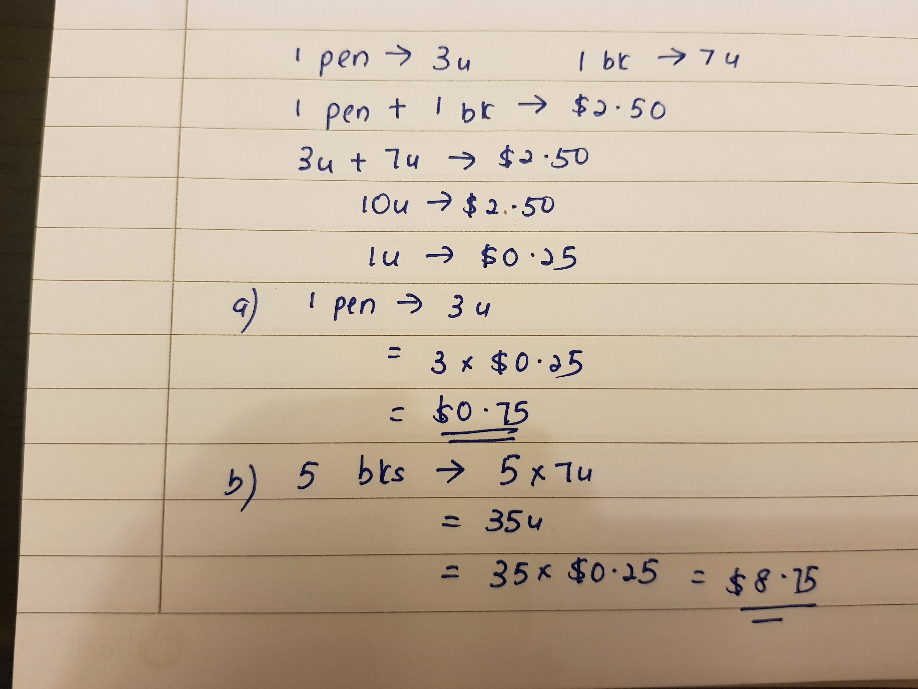 1 pen → 3u 1 bk → 7u
1 pen + 1 bk → $2.50
3u + 7u → $2.50
10u → $2.50
1u → $0.25
a) 1 pen → 3u
= 3 x $0.25
= $0.75
b) 5 bks → 5 x 7u
= 35u
= 35 x $0.25 = $8.75